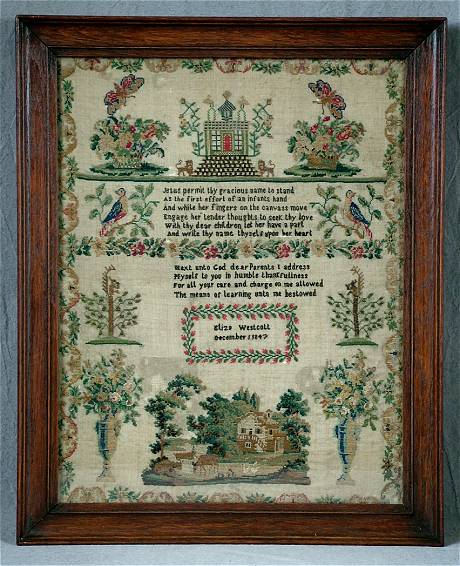 Jesus permit thy gracious name to stand
As the first effort of an infants hand
And while her fingers on the canvass move
Engage her tender thoughts to seek thy love
With thy dear children let her have a part
And write thy name thyself upon her heart
Next unto God dear Parents I address
Myself to you in humble thankfullness
For all your care and charge on me allowed
The means of learning unto me bestowed
Eliza Westcott
December 1847